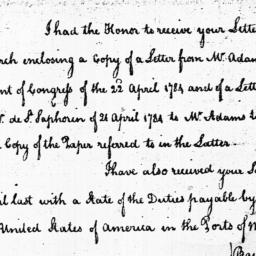 I had the Honor to receive your Lette
rch enclosing a Copy of a Letter from Mr. Adams
nt of Congress of the 22 April 1784 and of a Lette
. de St. Saphorin of 21 April 1784 to Mr. Adams to
Copy of the Paper referred to in the Latter.
I have also received your
il last with a State of the Duties payable by
United States of America in the Ports of